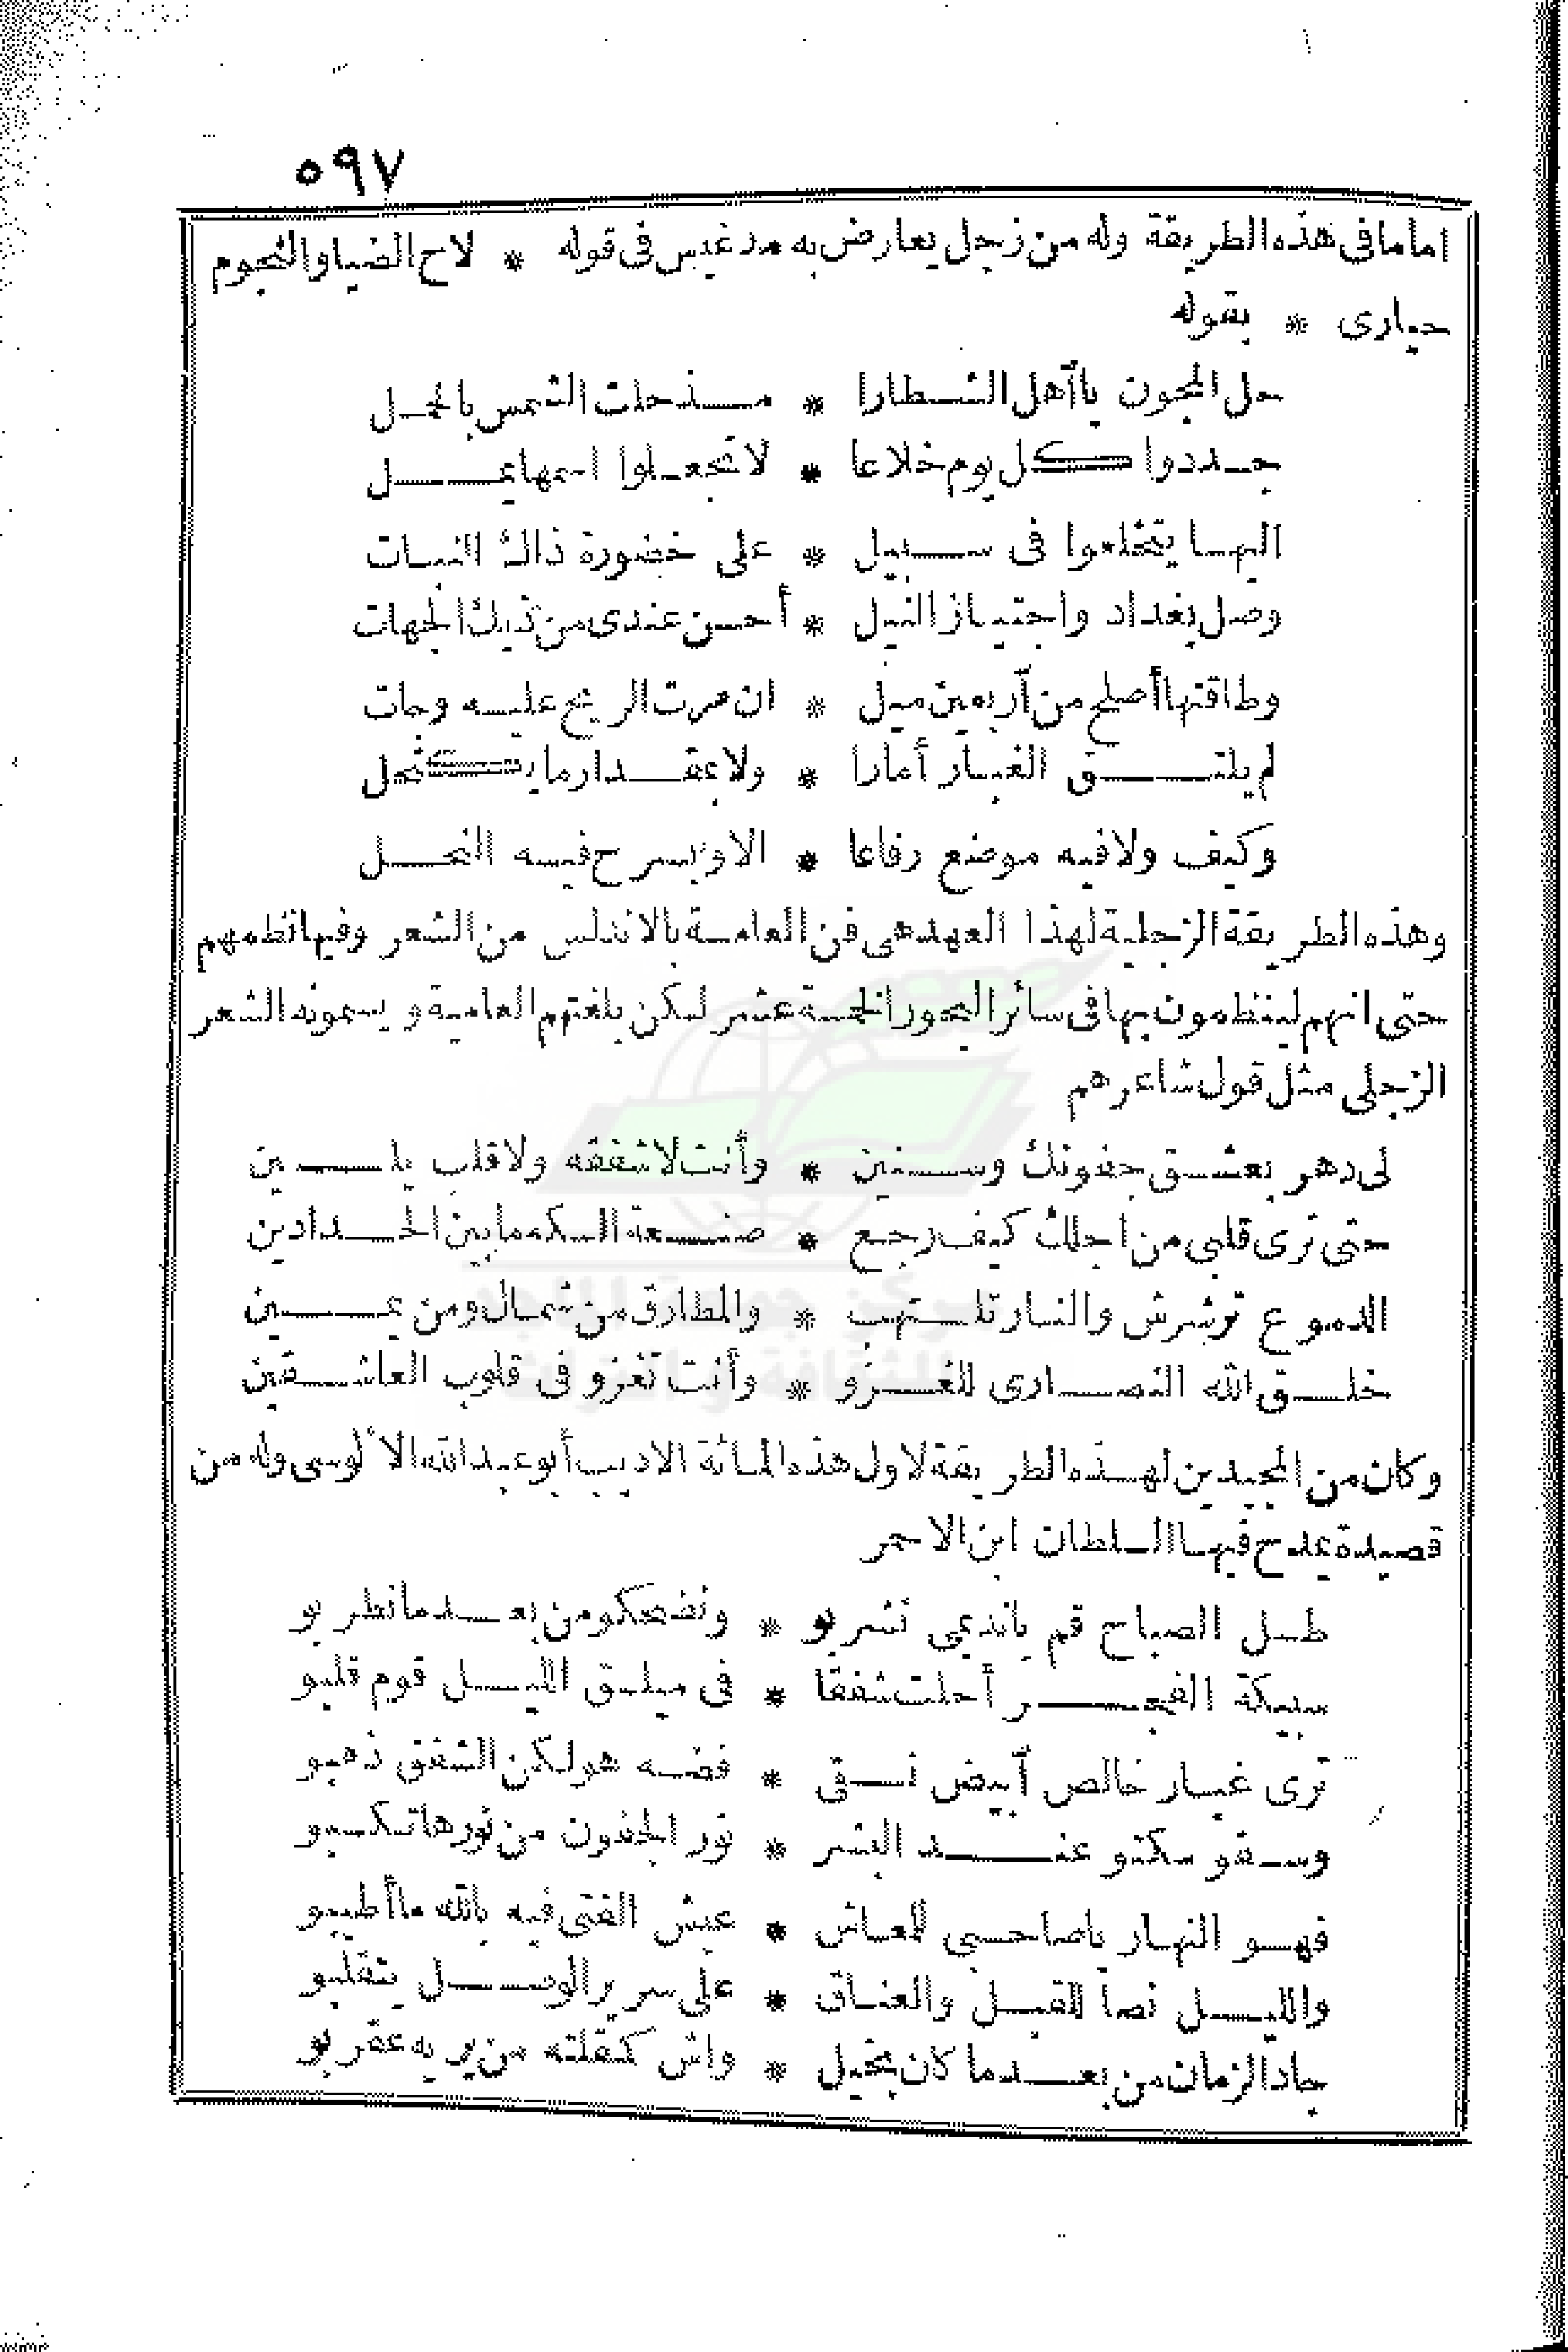 ٥٩٧
اماما فى هذه الطريقة وله من زجل يعارض به مدغيس فى قوله * لاح الضيا والنجوم
حيارى * بقوله
حل المجون يا أهل الشطارا * مذ حلت الشمس بالحمل
جددوا كل يوم خلاعا * لا تجعلوا اسمها يمل
اليها يتخلعوا فى سبيل * على خضورة ذاك النبات
وصل بغداد واجتياز النيل * أحسن عندى من ذيك الجهات
وطاقتها أصلح من أربعين ميل * ان مرت الريح عليه وجات
لم يلتق الغبار أمارا * ولا بمقدار ما يكتحل
وكيف ولا فيه موضع رفاعا * الا ويسرح فيه النحل
وهذه الطريقة الزجلية لهذا العهد هى فن العامة بالاندلس من الشعر وفيها نظمهم
حتى انهم لينظمون بها فى سائر البحور الخمسة عشر لكن بلغتهم العامية ويسمونه الشعر
الزجلى مثل قول شاعرهم
لى دهر بعشق جفونك وسنين * وأنت لا شفقه ولا قلب يلين
حتى ترى قلبى من اجلك كيف رجع * صنعة السكه ما بين الحدادين
الدموع ترشرش والنار تلتهب * والمطارق من شمال ومن يمين
خلق الله النصارى للغزو * وأنت تغزو فى قلوب العاشقين
وكان من المجيدين لهذه الطريقة لاول هذه المائة الاديب أبو عبد الله الألوسى وله من
قصيدة يمدح فيها السلطان ابن الاحمر
طل الصباح قم يا نديمى نشربو * ونضحكو من بعد ما نطربو
سبيكة الفجر أحلت شفقا * فى ميلق الليل قوم قلبو
ترى غبار خالص أبيض نقى * فضه هو لكن الشفق ذهبو
وسقو سكتو عند البشر * نور الجفون من نورها تكسبو
فهو النهار يا صاحبى للمعاش * عيش الفتى فيه بالله ما أطيبو
والليل نصا للقبل والعناق * على سرير الوصل يتقلبو
جاد الزمان من بعد ما كان بخيل * واش كفلته من يريه عقربو
مركز جمعة الماجد
للثقافة والتراث